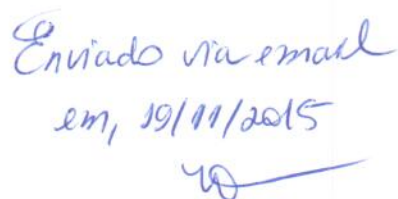 Enviado via email
em, 19/11/2015